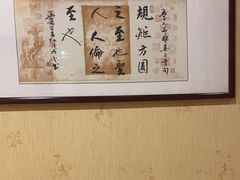 規矩方圓
之至也聖
人人倫之
至也